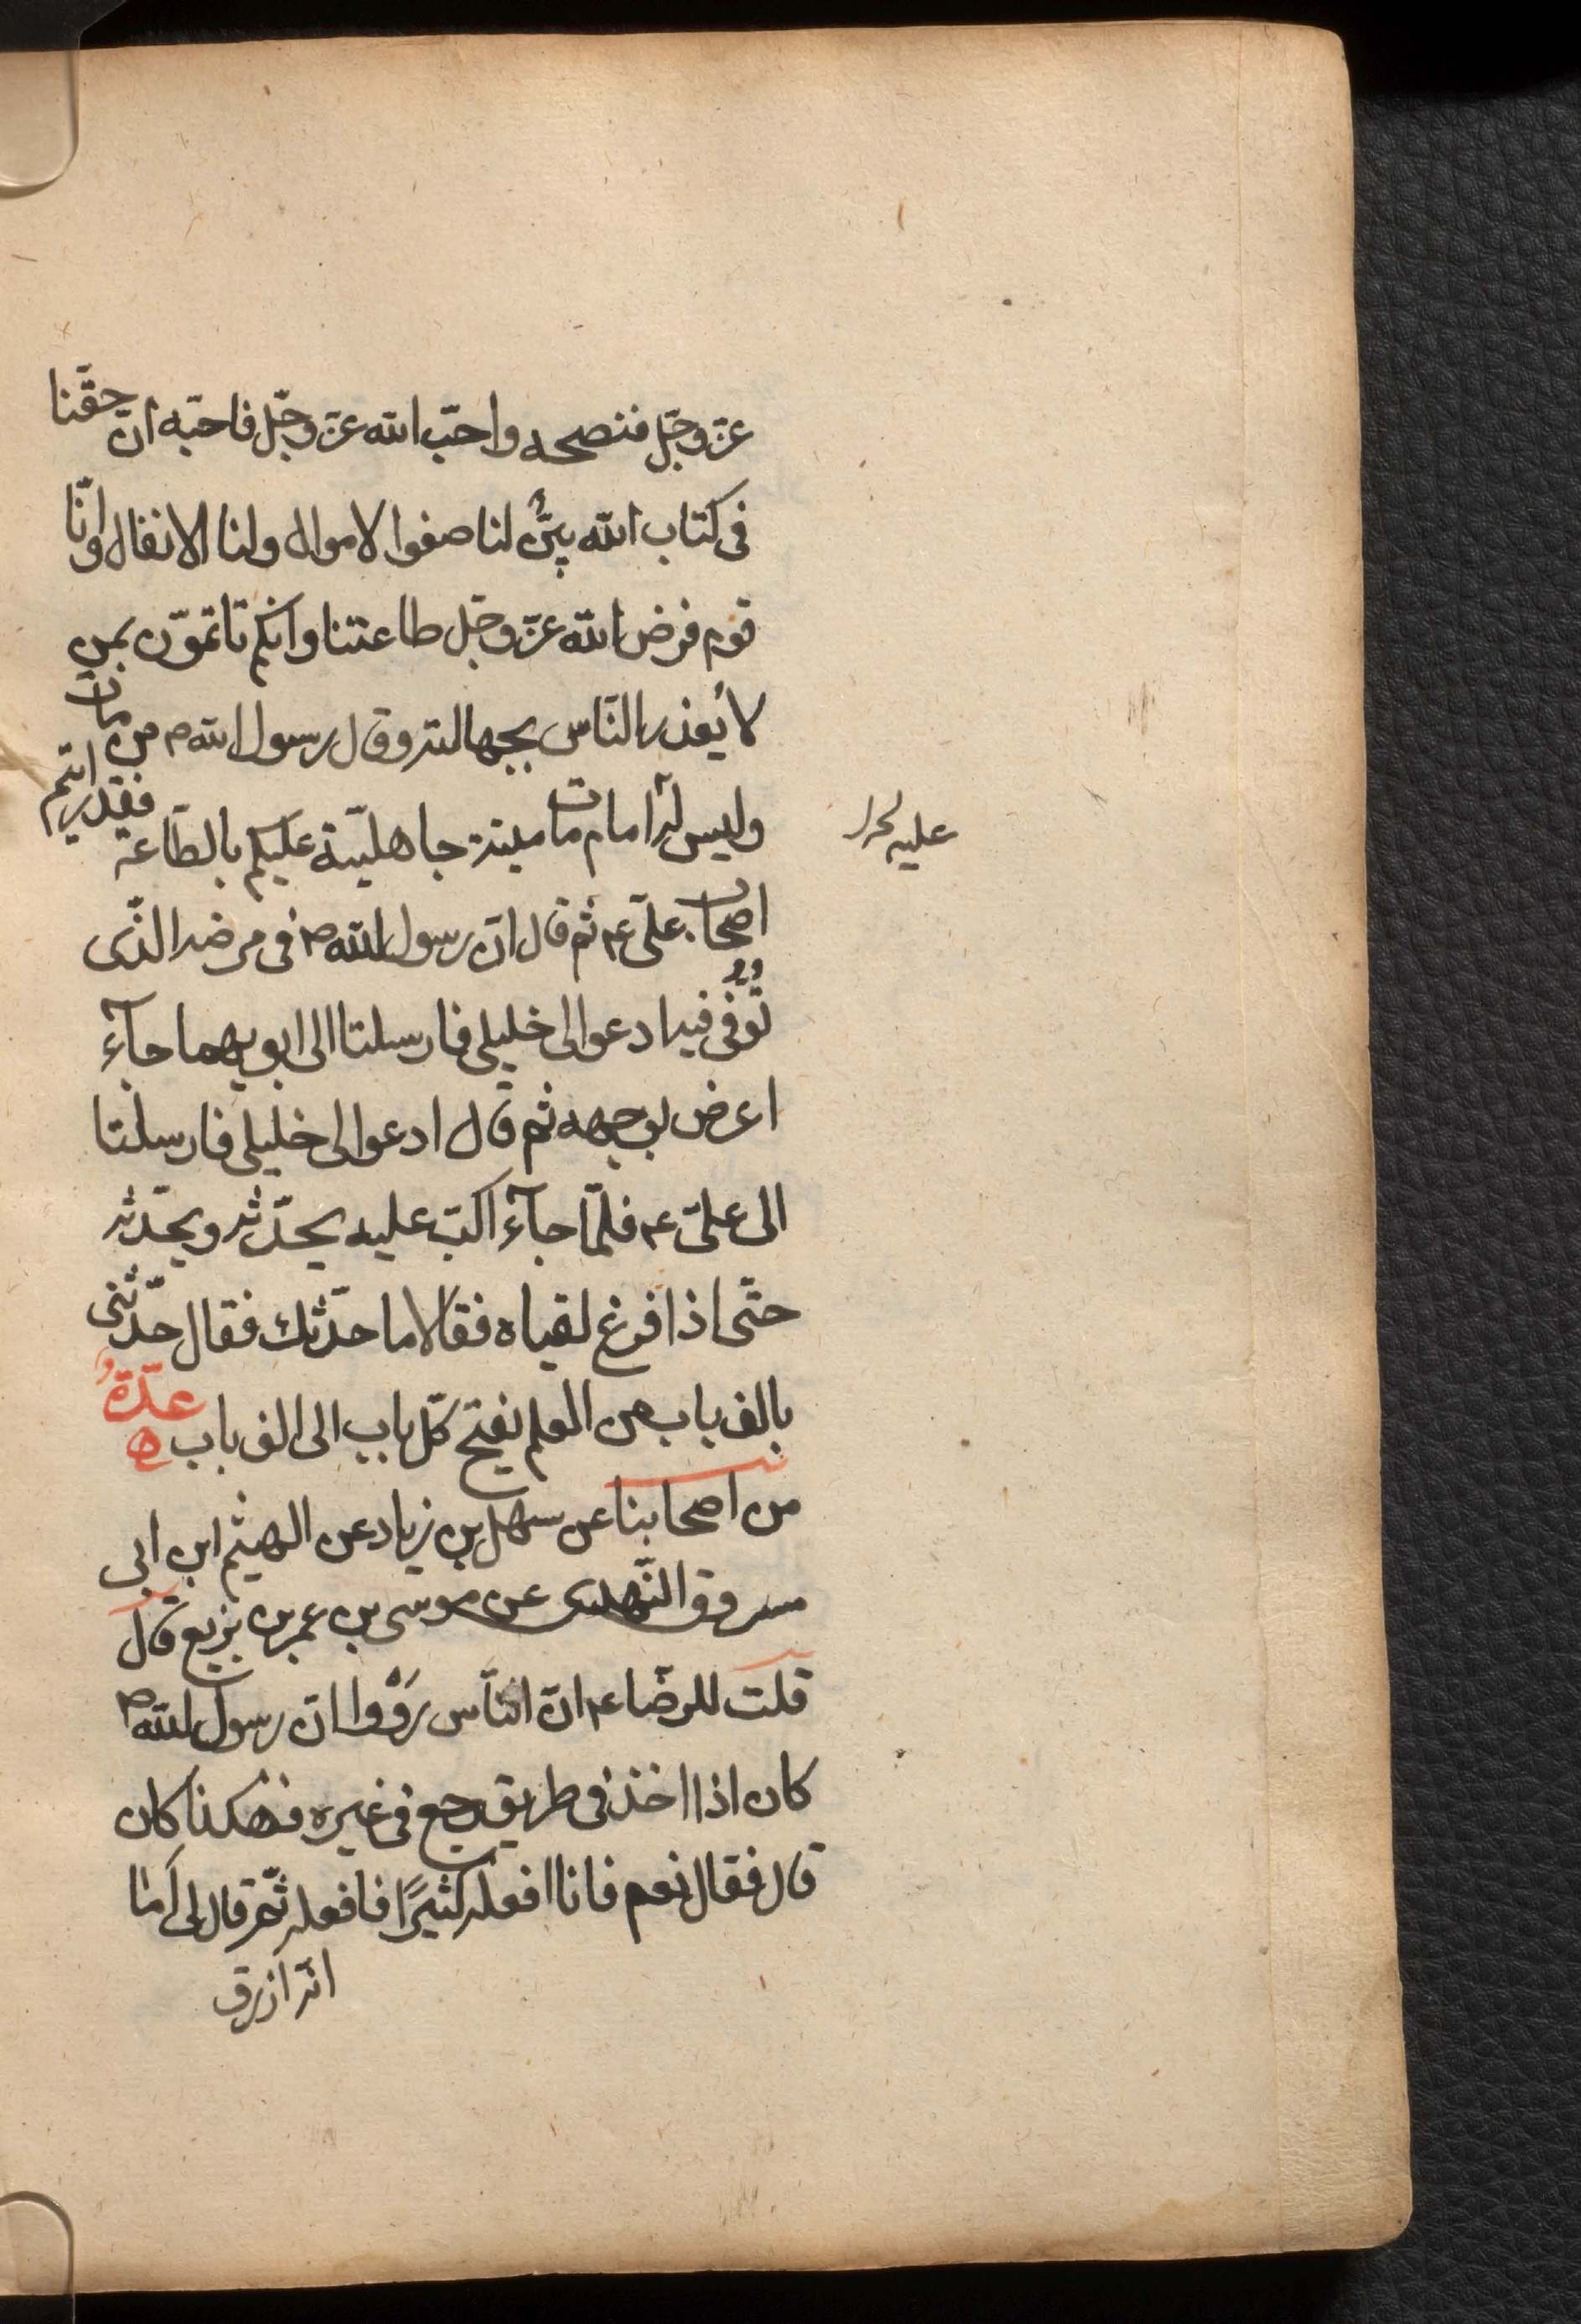 عزّ وجلّ فنصحه واحبّ الله عزّ وجلّ فاحبّه انّ حقّنا
فى كتاب الله بيّنٌ لنا صفوا لاموال ولنا الانفال وانّا
قوم فرض الله عزّ وجلّ طاعتنا وانكم تاتمّون بمن
لا يُعذر النّاس بجهالته وقال رسول الله ص من مات
وليس له امام مات ميتة جاهليّة عليكم بالطّاعة فقد رايتم
عليه
اصحاب علىّ ع ثم قال انّ رسول الله ص فى مرضه الذّى
تُوُفّى فيه ادعوا لى خليلى فارسلتا الى ابويهما جآء
اعرض بوجهه ثم قال ادعوا لى خليلى فارسلتا
الى علىّ ع فلمّا جآء اكبّ عليه يحدّثه ويحدّثه
حتّى اذا فرغ لقياه فقالا ما حدّثك فقال حدّثنى
بالف باب من العلم يفتح كلّ باب الى الف باب ه عدّةٌ
من اصحابنا عن سهل بن زياد عن الهيثم ابن ابى
مسروق النّهدى عن موسى بن عمر بن بزيع قال
قلت للرضّا ع انّ النّاس رَوَوْا انّ رسول الله ص
كان اذا اخذ فى طريق رجع فى غيره فهكذا كان
قال فقال نعم فانا افعله كثيرًا فافعله ثمّ قال لى اَما
انّه ارزق